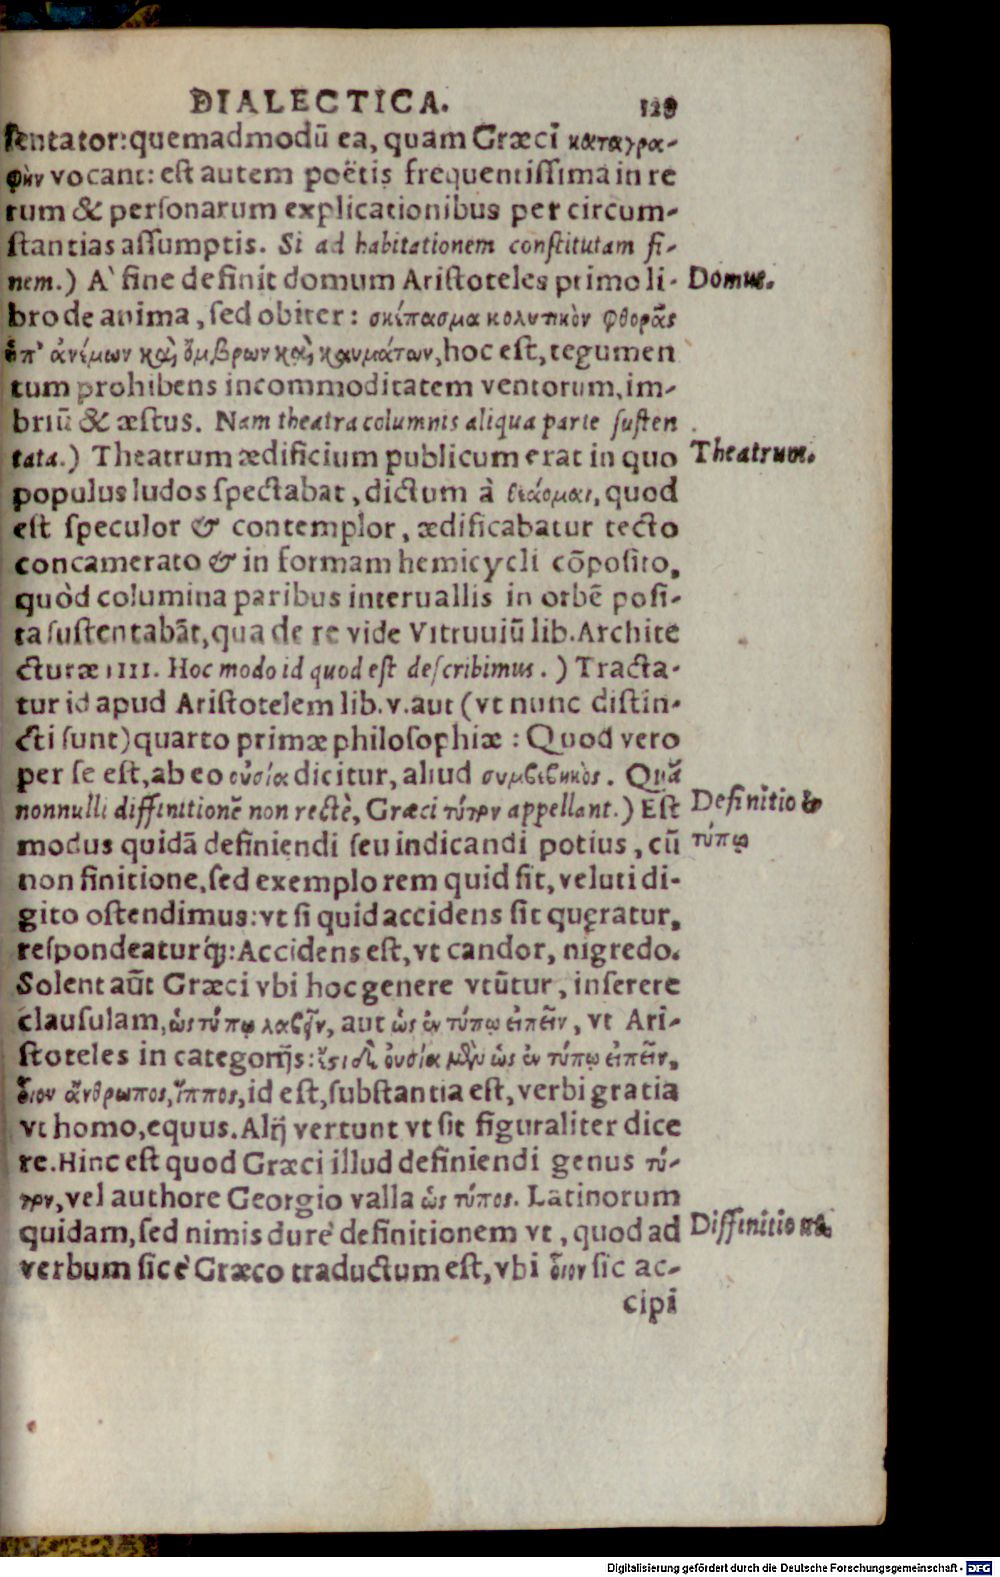 DIALECTICA. 129
sentator: quemadmodū ea, quam Græci καταγρα-
φὴν vocant: est autem poëtis frequentissima in re
rum & personarum explicationibus per circum-
stantias assumptis. Si ad habitationem constitutam fi-
nem.) A` fine definit domum Aristoteles primo li-
Domus.
bro de anima, sed obiter: σκέπασμα κολυτικὸν φθορᾶς
ὑπ' ἀνέμων καὶ ὄμβρων καὶ καυμάτων, hoc est, tegumen
tum prohibens incommoditatem ventorum, im-
briū & æstus. Nam theatra columnis aliqua parte susten
tata.) Theatrum ædificium publicum erat in quo
Theatrum.
populus ludos spectabat, dictum à θεάομαι, quod
est speculor & contemplor, ædificabatur tecto
concamerato & in formam hemicycli cōposito,
quòd columina paribus interuallis in orbē posi-
ta sustentabāt, qua de re vide Vitruuiū lib. Archite
cturæ IIII. Hoc modo id quod est describimus.) Tracta-
tur id apud Aristotelem lib. v. aut (vt nunc distin-
cti sunt) quarto primæ philosophiæ: Quod vero
per se est, ab eo οὐσία dicitur, aliud συμβεβηκὸς. Quā
nonnulli diffinitionē non rectè, Græci τύπον appellant.) Est
Definitio ἐν
modus quidā definiendi seu indicandi potius, cū
τύπῳ
non finitione, sed exemplo rem quid sit, veluti di-
gito ostendimus: vt si quid accidens sit quęratur,
respondeaturq́;: Accidens est, vt candor, nigredo.
Solent aūt Græci vbi hoc genere vtūtur, inserere
clausulam, ὡς τύπῳ λαβεῖν, aut ὡς ἐν τύπῳ εἰπεῖν, vt Ari-
stoteles in categorijs: ἔστι δὲ οὐσία μὲν ὡς ἐν τύπῳ εἰπεῖν,
οἷον ἄνθρωπος, ἵππος, id est, substantia est, verbi gratia
vt homo, equus. Alij vertunt vt sit figuraliter dice
re. Hinc est quod Græci illud definiendi genus τύ-
πον, vel authore Georgio valla ὡς τύπος. Latinorum
quidam, sed nimis durè definitionem vt, quod ad
Diffinitio
verbum sic è Græco traductum est, vbi οἷον sic ac-
cipi
Digitalisierung gefördert durch die Deutsche Forschungsgemeinschaft - DFG